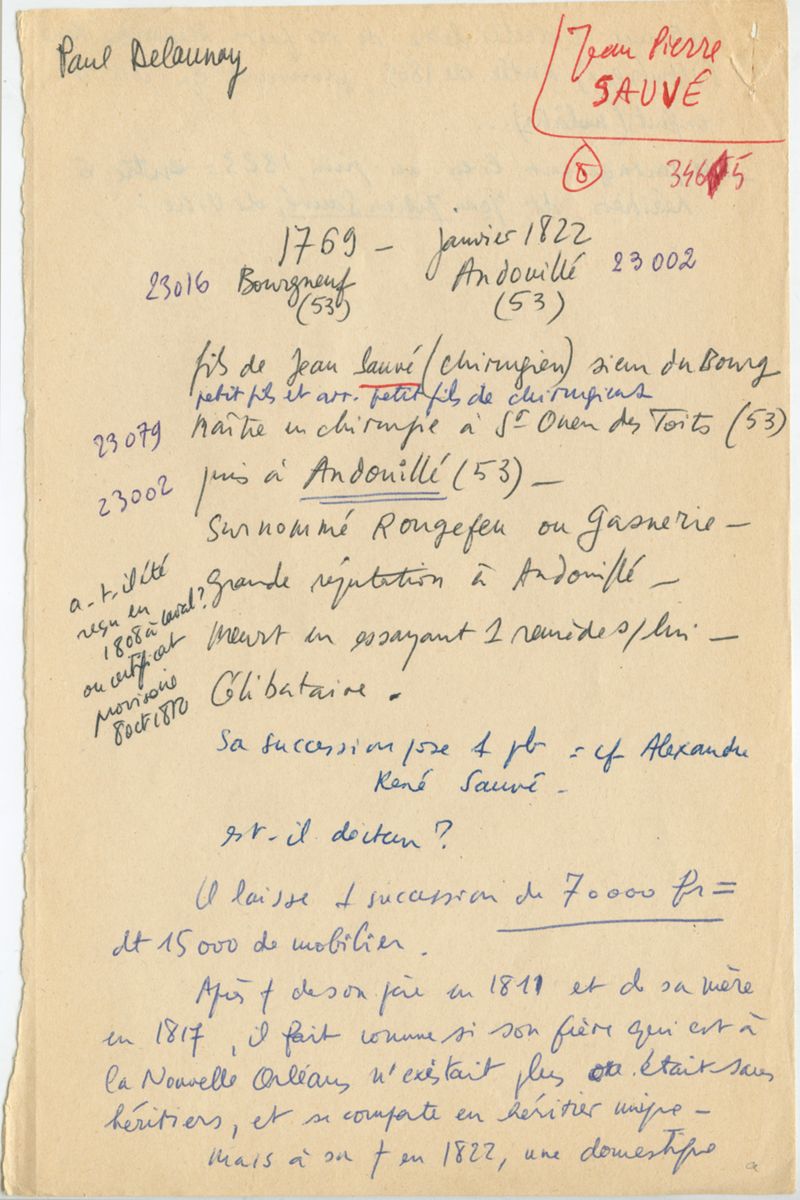 Paul Delaunay
Jean Pierre
SAUVÉ
34675
1769 - janvier 1822
23016 Bourgneuf Andouillé 23002
(53) (53)
fils de Jean Sauvé (chirurgien) sieur du Bourg
petit fils et arr. petit fils de chirurgiens
23079 Maître en chirurgie à St Ouen des Toits (53)
23002 puis à Andouillé (53) -
Surnommé Rougefeu ou Gasnerie -
Grande réputation à Andouillé -
Meurt en essayant 1 remèdes/lui -
Célibataire.
a-t-il été
reçu en
1808 à Laval?
ou certificat
provisoire
8 oct 1812
Sa succession pose 1 pb = cf Alexandre
René Sauvé -
est-il docteur?
Il laisse 1 succession de 70000 Fr =
dt 15000 de mobilier.
Après † de son père en 1811 et de sa mère
en 1817, il fait comme si son frère qui est à
la Nouvelle Orléans n'existait plus ou était sans
héritiers, et se comporte en héritier unique -
Mais à sa † en 1822, une domestique